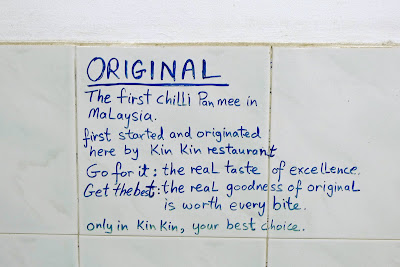 ORIGINAL
The first chilli Pan mee in
Malaysia.
first started and originated
here by Kin Kin restaurant
Go for it : the real taste of excellence.
Get the best : the real goodness of original
is worth every bite.
only in Kin Kin, your best choice.